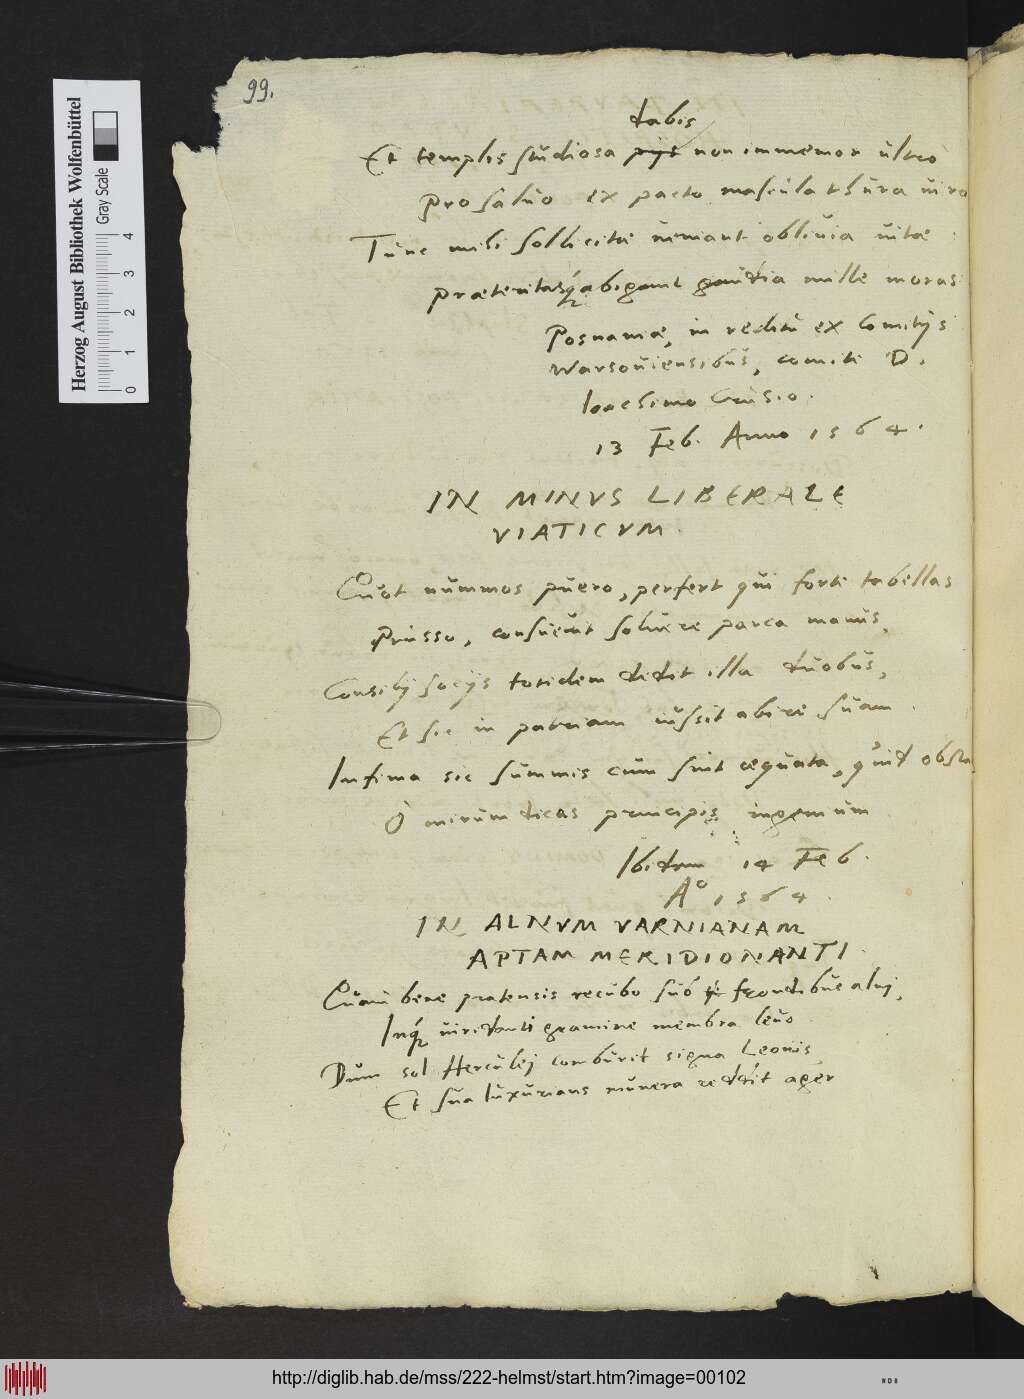 99.
dabis
Et templis studiosa pijs non immemor ultro
Pro saluo ex pacto mascula thura uiro
Tunc mihi sollicitæ ueniant obliuia uitæ
præteritasq́ abigant gaudia mille moras
Posnaniæ, in reditu ex Comitijs
Warsouiensibus, comiti D.
Ioachimo
13 Feb. Anno 1564.
IN MINVS LIBERALE
VIATICVM.
Quot nummos puero, perfert qui forte tabellas
Prusso, consueuit soluere parca manus,
Consilij socijs totidem dedit illa duobus,
Et sic in patriam iussit abire suam.
Infima sic summis cum sint æquata, quid obstat
O mirum dicas principis ingenium
Ibidem 14 Feb.
Aº 1564.
IN ALNVM VARNIANAM
APTAM MERIDIONANTI.
Quam bene pratensis recubo sub frondibus alni,
Inq́ uiridanti gramine membra leuo
Dum sol Herculei comburit signa Leonis
Et sua luxurians munera reddit ager
Herzog August Bibliothek Wolfenbüttel
Gray Scale
0 1 2 3 4
http://diglib.hab.de/mss/222-helmst/start.htm?image=00102